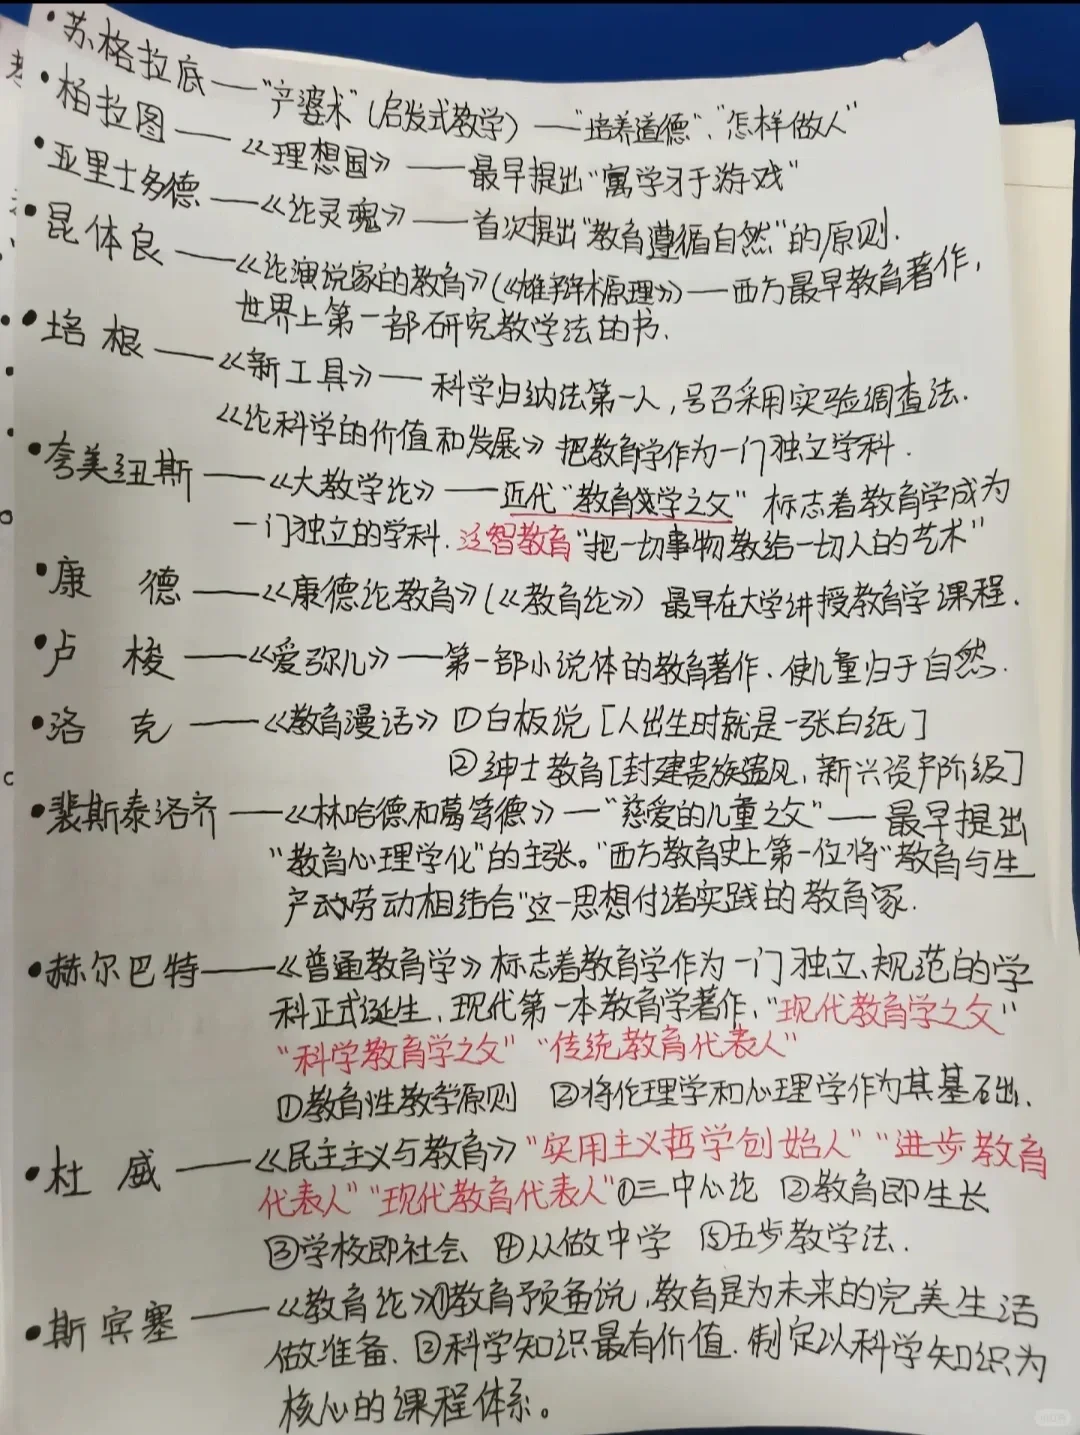 •苏格拉底——"产婆术"(启发式教学)——"培养道德"、"怎样做人"
•柏拉图——《理想国》——最早提出"寓学习于游戏"
•亚里士多德——《论灵魂》——首次提出"教育遵循自然"的原则.
•昆体良——《论演说家的教育》(《雄辩术原理》)——西方最早教育著作,
世界上第一部研究教学法的书.
•培根——《新工具》——科学归纳法第一人,号召采用实验调查法.
《论科学的价值和发展》把教育学作为一门独立学科.
•夸美纽斯——《大教学论》——近代"教育学之父" 标志着教育学成为
一门独立的学科.泛智教育"把一切事物教给一切人的艺术"
•康 德——《康德论教育》(《教育论》) 最早在大学讲授教育学课程.
•卢 梭——《爱弥儿》——第一部小说体的教育著作.使儿童归于自然.
•洛 克——《教育漫话》①白板说[人出生时就是一张白纸]
②绅士教育[封建贵族遗风,新兴资产阶级]
•裴斯泰洛齐——《林哈德和葛笃德》—"慈爱的儿童之父"—最早提出
"教育心理学化"的主张."西方教育史上第一位将"教育与生
产劳动相结合"这一思想付诸实践的教育家.
•赫尔巴特——《普通教育学》标志着教育学作为一门独立、规范的学
科正式诞生.现代第一本教育学著作,"现代教育学之父"
"科学教育学之父" "传统教育代表人"
①教育性教学原则 ②将伦理学和心理学作为其基石出.
•杜 威——《民主主义与教育》"实用主义哲学创始人" "进步教育
代表人" "现代教育代表人"①三中心论 ②教育即生长
③学校即社会 ④从做中学 ⑤五步教学法.
•斯宾塞——《教育论》①教育预备说,教育是为未来的完美生活
做准备.②科学知识最有价值.制定以科学知识为
核心的课程体系。